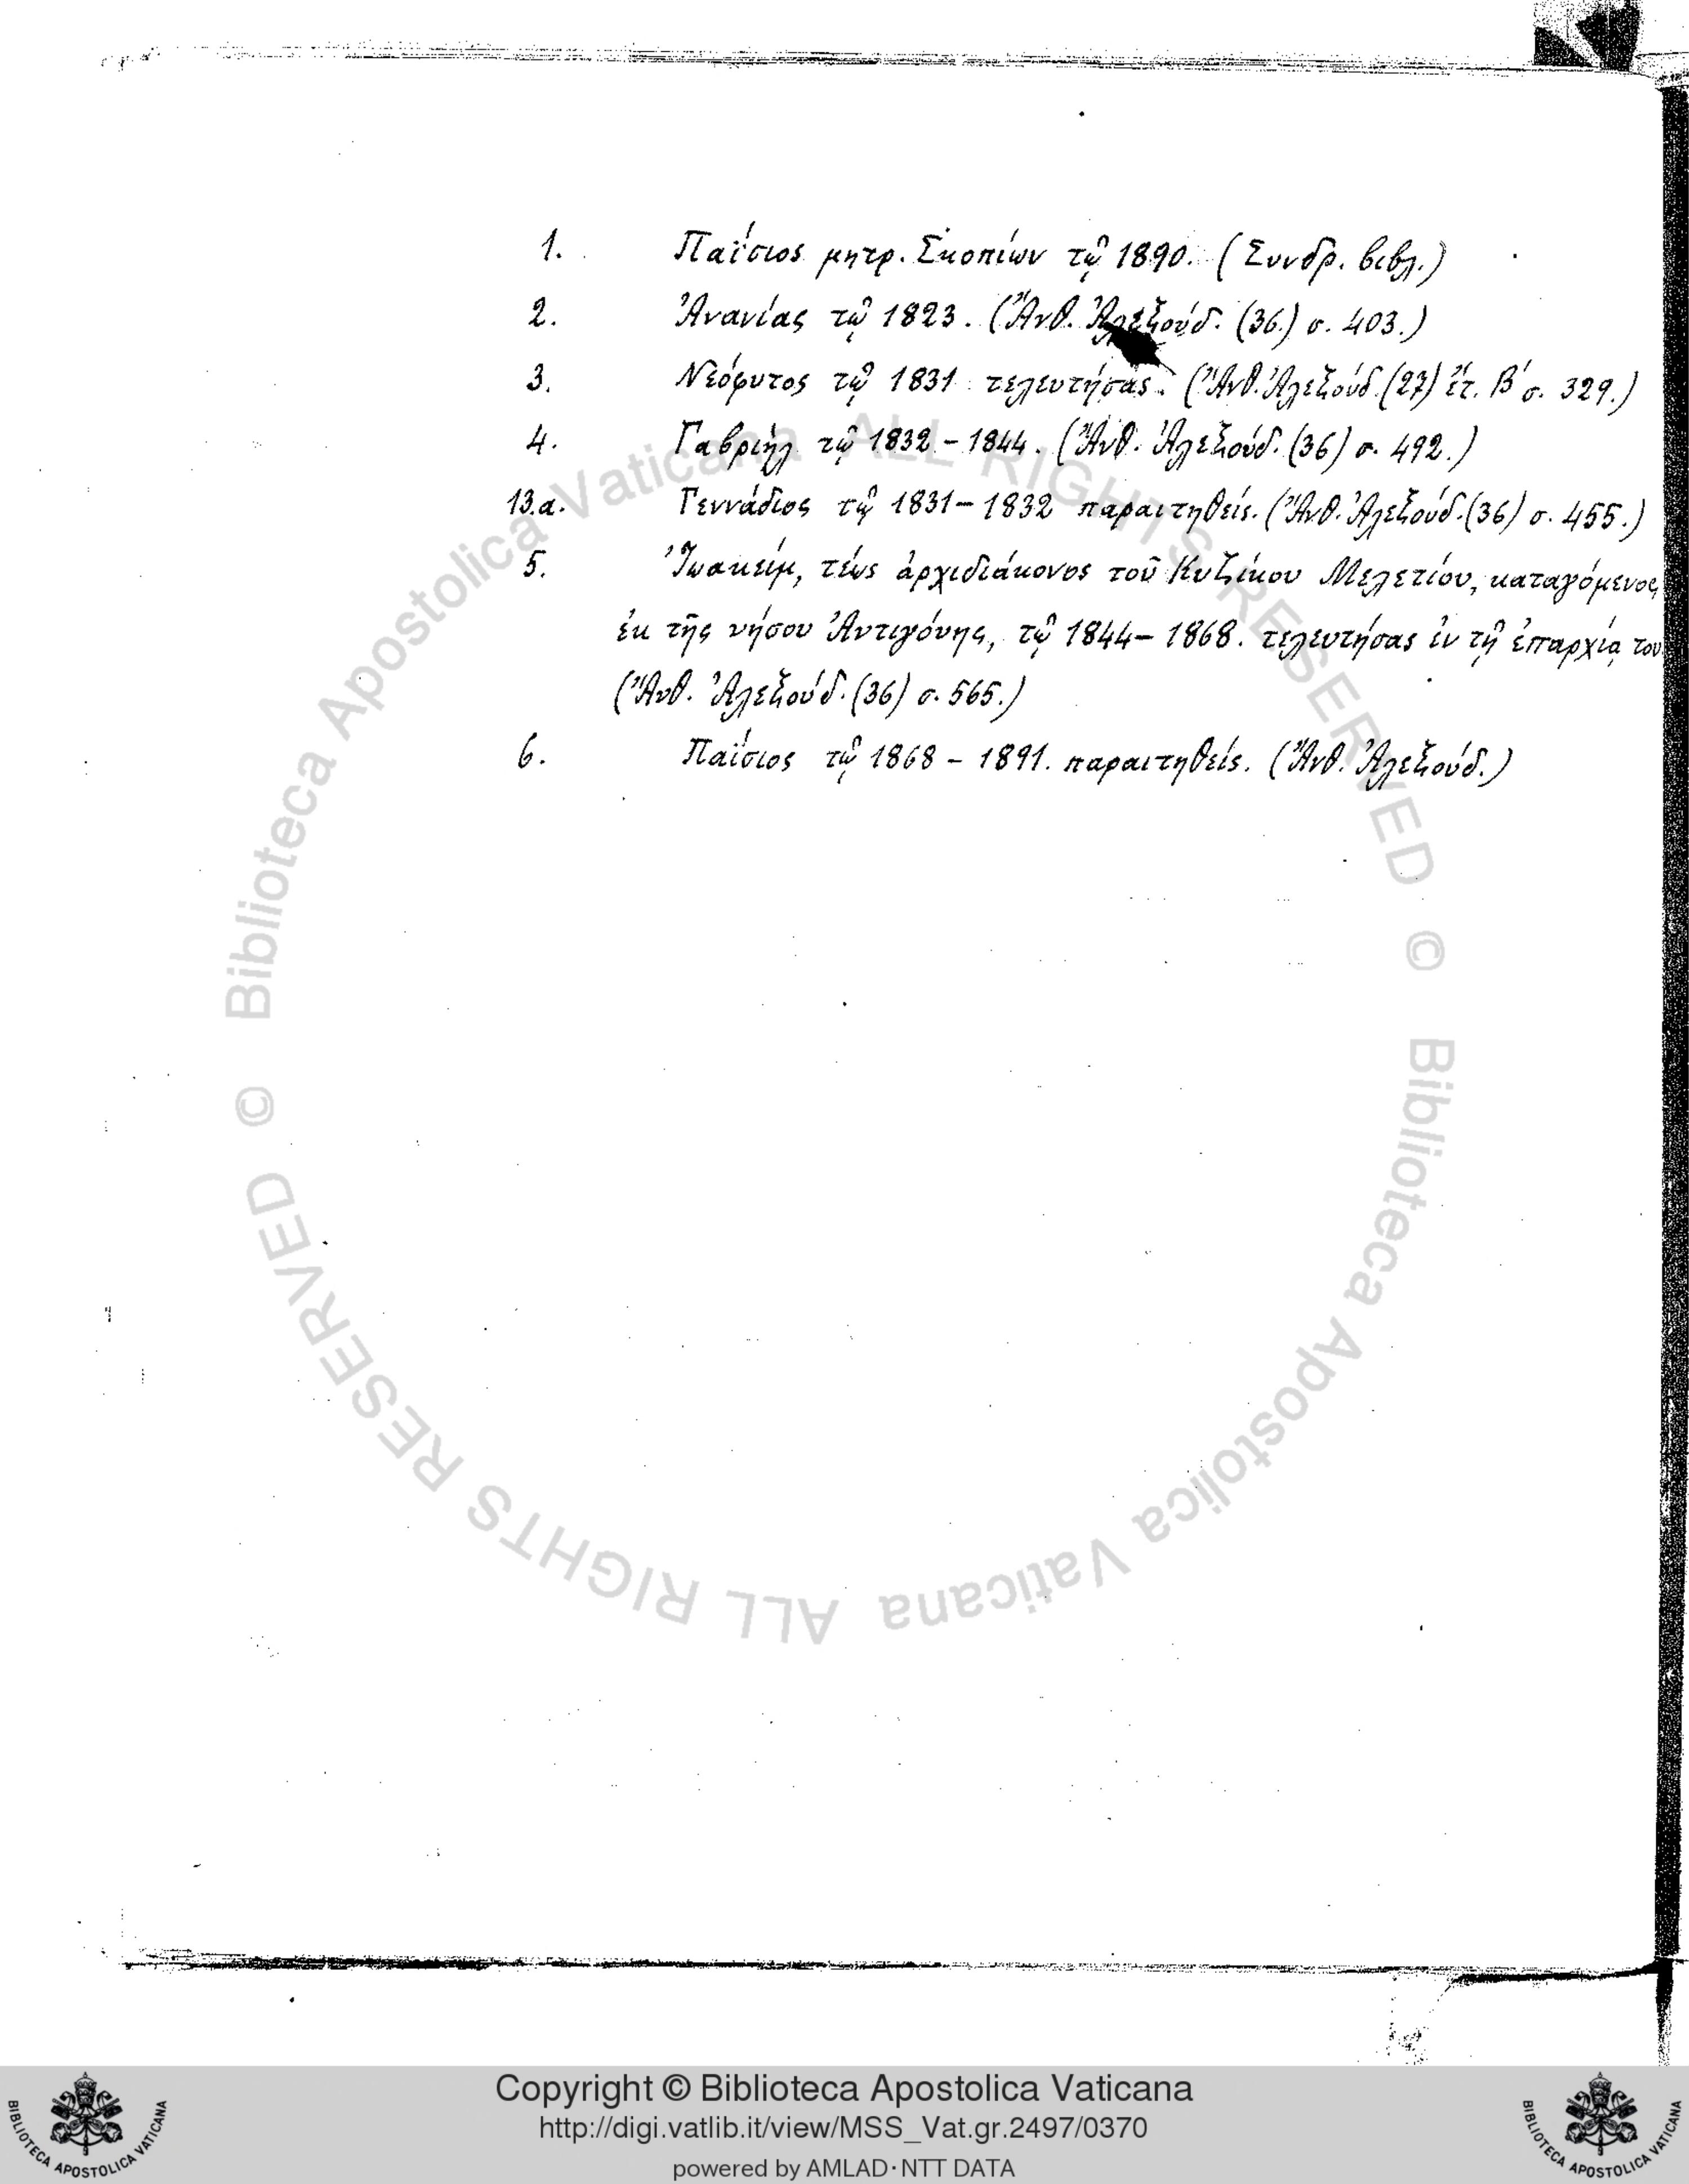 1. Παΐσιος μητρ. Σκοπίων τῷ 1890. (Συνδρ. βιβλ.)
2. Ἀνανίας τῷ 1823. (Ἄνθ. Ἀλεξούδ. (36.) σ. 403.)
3. Νεόφυτος τῷ 1831 τελευτήσας. (Ἄνθ. Ἀλεξούδ. (27) ἔτ. Β΄ σ. 329.)
4. Γαβριὴλ τῷ 1832 - 1844. (Ἄνθ. Ἀλεξούδ. (36) σ. 492.)
13.α. Γεννάδιος τῷ 1831 - 1832 παραιτηθείς. (Ἄνθ. Ἀλεξούδ. (36) σ. 455.)
5. Ἰωακείμ, τέως ἀρχιδιάκονος τοῦ Κυζίκου Μελετίου, καταγόμενος
ἐκ τῆς νήσου Ἀντιγόνης, τῷ 1844 - 1868. τελευτήσας ἐν τῇ ἐπαρχίᾳ του
(Ἄνθ. Ἀλεξούδ. (36) σ. 565.)
6. Παΐσιος τῷ 1868 - 1891. παραιτηθείς. (Ἄνθ. Ἀλεξούδ.)
© Biblioteca Apostolica Vaticana ALL RIGHTS RESERVED
© Biblioteca Apostolica Vaticana ALL RIGHTS RESERVED
Copyright © Biblioteca Apostolica Vaticana
http://digi.vatlib.it/view/MSS_Vat.gr.2497/0370
powered by AMLAD·NTT DATA
BIBLIOTECA APOSTOLICA VATICANA
BIBLIOTECA APOSTOLICA VATICANA